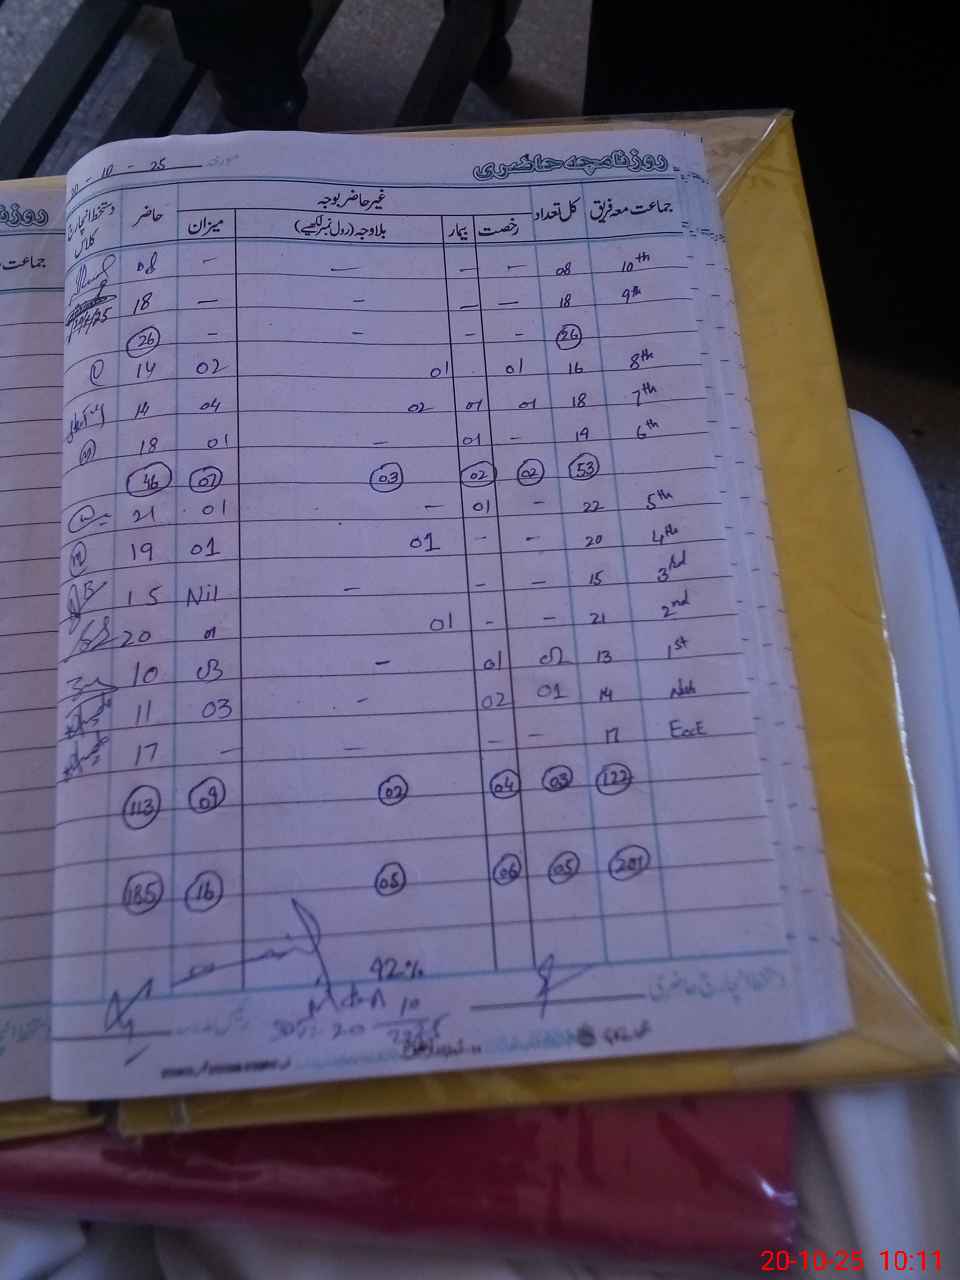 روزنامچہ حاضری
مورخہ 20 - 10 - 25
جماعت معہ فریق کل تعداد غیر حاضر بوجہ حاضر دستخط انچارج کلاس
رخصت بیمار بلاوجہ (رول نمبر لکھیے) میزان
10th 08 — — — — 08
9th 18 — — — — 18
26 - - - - 26
8th 16 01 01 02 14
7th 18 01 01 02 04 14
6th 19 - 01 - 01 18
53 02 02 03 07 46
5th 22 - 01 - 01 21
4th 20 - - 01 01 19
3rd 15 - - - Nil 15
2nd 21 - - 01 01 20
1st 13 02 01 - 03 10
14 01 02 - 03 11
EccE 17 - - - - 17
122 03 04 02 09 113
201 05 06 05 16 185
92%
دستخط انچارج حاضری
روزنا
جماعت
20-10-25 10:11